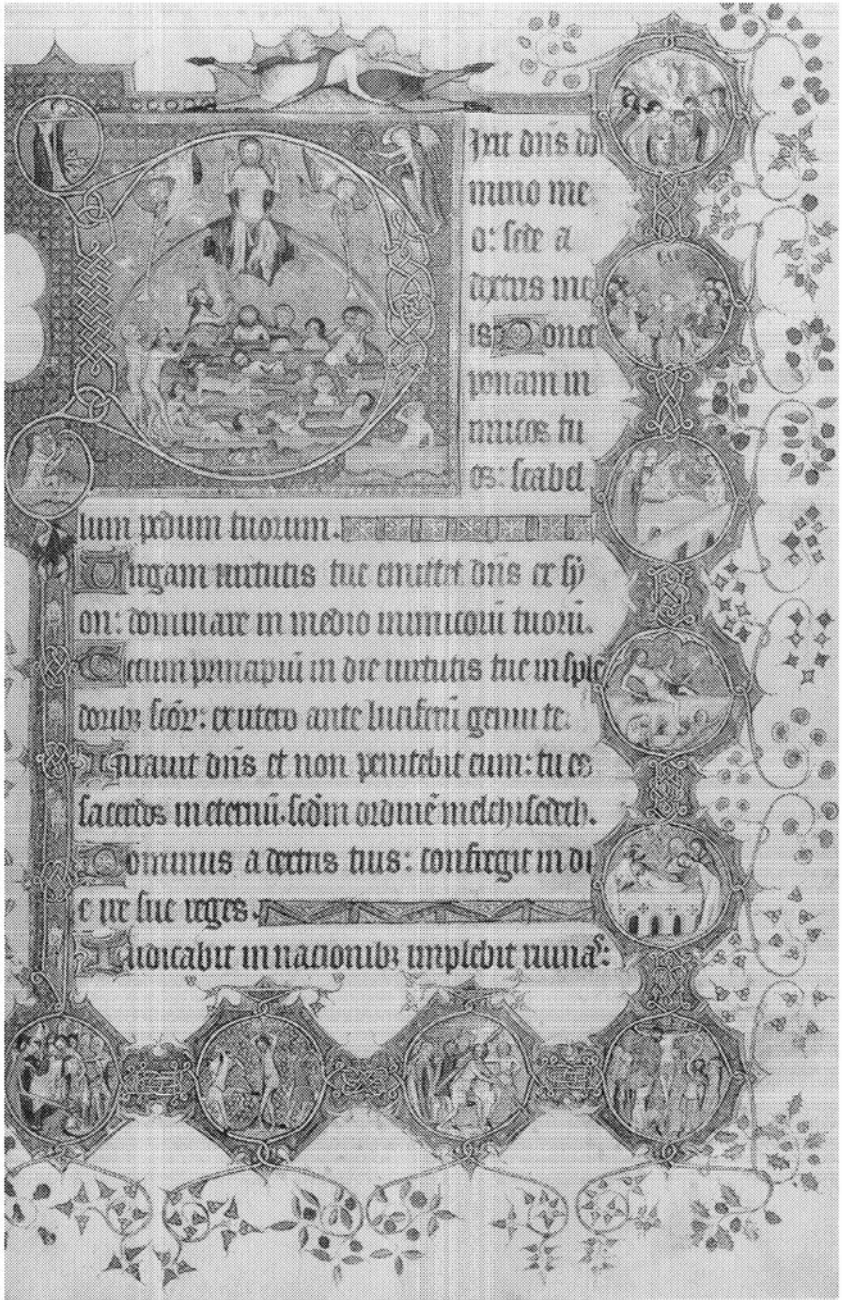 Ixit dñs do
mino me
o: sede a
dextris me
is: Donec
ponam in
imicos tu
os: scabel
lum pedum tuorum.
Uirgam uirtutis tue emittet dñs ex sy
on: dominare in medio inimicorũ tuorũ.
Tecum principiũ in die uirtutis tue in sple
doribꝫ scõꝝ: ex utero ante luciferũ genui te.
Iurauit dñs et non penitebit eum: tu es
sacerdos in eternũ. scđm ordinẽ melchisedech.
Dominus a dextris tuis: confregit in di
e ire sue reges.
Iudicabit in nacionibꝫ implebit ruinas: